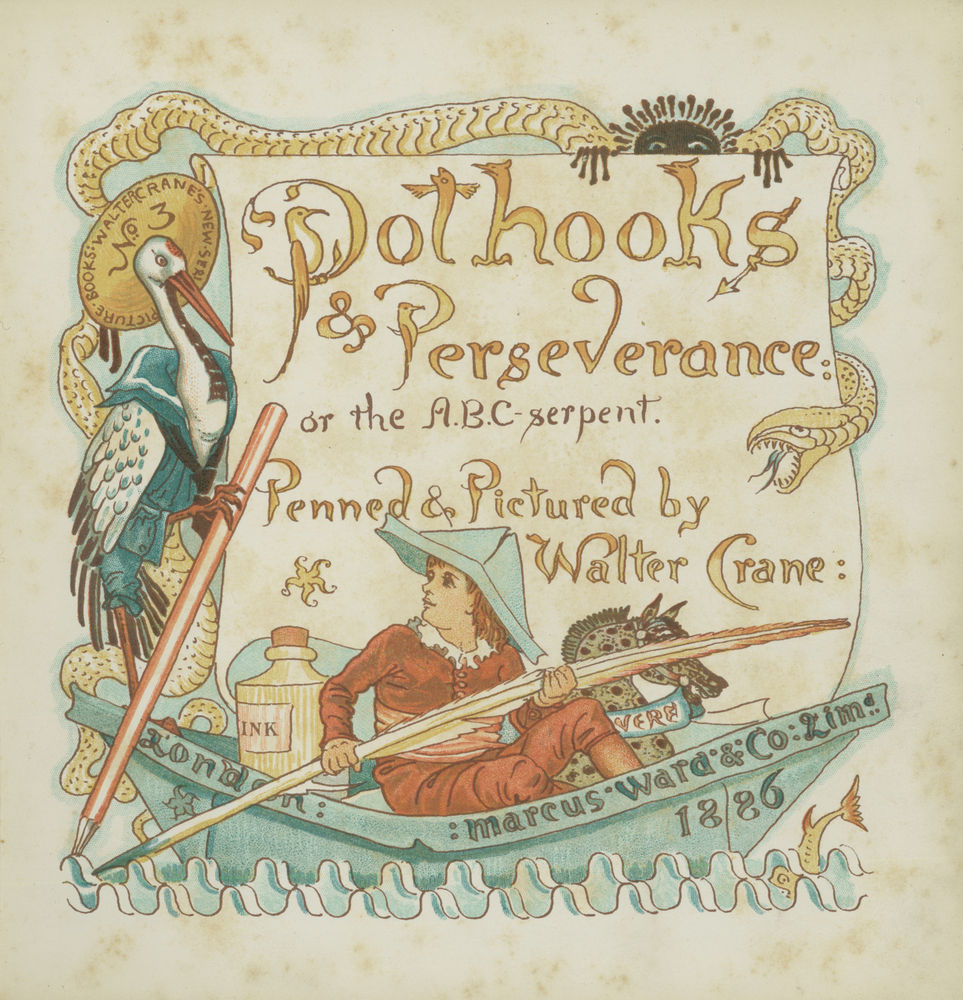 WALTER CRANE'S · NEW · SERI
PICTURE · BOOKS:
No. 3
Pothooks
& Perseverance:
or the A.B.C-serpent.
Penned & Pictured by
Walter Crane:
INK
VERE
London: :Marcus · Ward · & Co: Limd.
1886
G